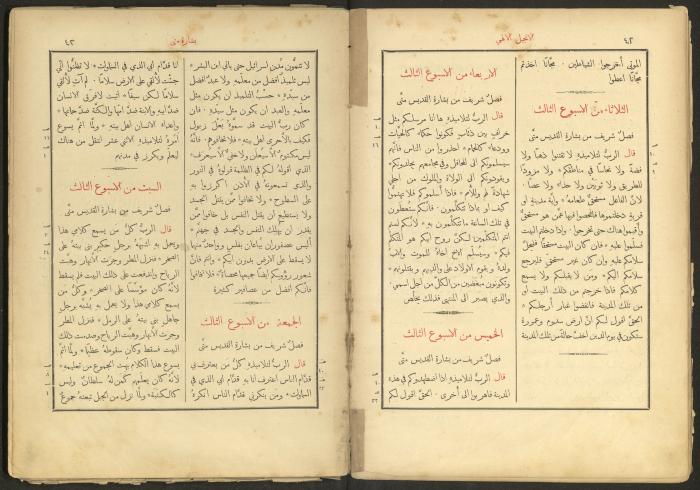 ٤٢
الانجيل الالهي
الموتى أخرجوا الشياطين ٠ مجّانًا اخذتم
مجّانًا اعطوا
الثلاثاء من الاسبوع الثالث
فصلٌ شريف من بشارة القديس متى
قال الربُّ لتلاميذهِ لا تقتنوا ذهبًا ولا
فضة ولا نحاسًا في مناطقكم * ولا مزودًا
للطريق ولا ثوبين ولا حذاء ولا عصا ٠
لانَّ الفاعل مستحقٌّ طعامهُ * وأية مدينة او
قرية دخلتموها فافحصوا فيها عمَّن هو مستحقٌّ
وأقيموا هناك حتى تخرجوا ٠ واذا دخلتم البيت
فسلّموا عليهِ * فان كان البيت مستحقًّا فليحلَّ
سلامكم عليهِ وان كان غير مستحقٍّ فليرجع
سلامكم اليكم * ومن لا يقبلكم ولا يسمع
كلامكم فاذا خرجتم من ذلك البيت او
من تلك المدينة فانفضوا غبار أرجلكم *
الحقَّ اقول لكم انَّ ارض سدوم وعمورة
ستكون في يوم الدين اخفَّ حالةً من تلك المدينة
الاربعاء من الاسبوع الثالث
فصل شريف من بشارة القديس متى
قال الربُّ لتلاميذهِ ها انا مرسلكم مثل
خراف بين ذئاب فكونوا حكماء كالحيّات
وودعاء كالحمام * احذروا من الناس فانهم
سيسلمونكم الى المحافل وفي مجامعهم يجلدونكم *
وتُقادون الى الولاة والملوك من اجلي
شهادةً لهم وللأمم * فاذا أسلموكم فلا تهتمّوا
كيف او بماذا تتكلّمون ٠ فانكم ستُعطون
في تلك الساعة ما تتكلّمون بهِ * لأنكم لستم
انتم المتكلّمين لكنَّ روح ابيكم هو المتكلّم
فيكم * وسيُسلم الأخ اخاهُ للموت والأب
ولدهُ ويقوم الأولاد على والديهم ويقتلونهم *
وتكونون مبغَضين من الكلّ من أجل اسمي ٠
والذي يصبر الى المنتهى فذلك يخلص
الخميس من الاسبوع الثالث
فصلٌ شريف من بشارة القديس متى
قال الربُّ لتلاميذهِ اذا اضطهدوكم في هذه
المدينة فاهربوا الى أخرى ٠ الحقَّ اقول لكم
بشارة متى
٤٣
لا تتمّون مدن إسرائيل حتى يأتي ابن البشر *
ليس تلميذٌ افضل من معلّمهِ ولا عبدٌ افضل
من سيّدهِ * حسبُ التلميذ ان يكون مثل
معلّمهِ والعبد ان يكون مثل سيّدهِ ٠ فان
كان ربُّ البيت قد سمَّوهُ بعلَ زبول
فكيف بالأحرى اهل بيتهِ * فلا تخافوهم ٠ فانهُ
ليس مكتومٌ الا سيُعلَن ولا خفيٌّ الا سيُعرف ٠
الذي اقولهُ لكم في الظلمة قولوهُ في النور
والذي تسمعونهُ في الأذن اكرزوا بهِ
على السطوح * ولا تخافوا ممّن يقتل الجسد
ولا يستطيع ان يقتل النفس بل خافوا ممّن
يقدر ان يهلك النفس والجسد في جهنّم *
أليس عصفوران يُباعان بفلس وواحدٌ منهما
لا يسقط على الارض بدون ابيكم * وانتم فانَّ
شعور رؤوسكم ايضًا جميعها محصاة * فلا تخافوا
فانكم أفضل من عصافير كثيرة
الجمعة من الاسبوع الثالث
فصلٌ شريف من بشارة القديس متى
قال الربُّ لتلاميذهِ كلُّ من يعترف بي
قدّام الناس اعترف انا بهِ قدّام ابي الذي في
السماوات * ومن ينكرني قدّام الناس أنكرهُ
انا قدّام ابي الذي في السماوات * لا تظنّوا أنّي
جئت لأُلقي على الارض سلامًا ٠ لم آتِ لألقي
سلامًا لكن سيفًا * أتيت لأفرّق الانسان
ضدَّ ابيهِ والابنة ضدَّ امّها والكنّة ضدَّ حماتها *
واعداء الانسان اهل بيتهِ * ولمّا اتمَّ يسوع
أمرهُ لتلاميذهِ الاثني عشر انتقل من هناك
ليعلّم ويكرز في مدنهم
السبت من الاسبوع الثالث
فصل شريف من بشارة القديس متى
قال الربُّ كلُّ من يسمع كلامي هذا
ويعمل بهِ اشبّههُ برجل حكيم بنى بيتهُ على
الصخر * فنزل المطر وجرت الأنهار وهبّت
الرياح واندفعت على ذلك البيت فلم يسقط
لانهُ كان مؤسَّسًا على الصخر * وكلُّ من
يسمع كلامي هذا ولا يعمل بهِ يُشبه برجل
جاهل بنى بيتهُ على الرمل * فنزل المطر
وجرت الأنهار وهبّت الرياح وصدمت ذلك
البيت فسقط وكان سقوطهُ عظيمًا * ولمّا اتمَّ
يسوع هذا الكلام بُهت الجموع من تعليمهِ *
لانهُ كان يعلّمهم كمن لهُ سلطانٌ وليس
كالكتبة * ولمّا نزل من الجبل تبعتهُ جموعٌ